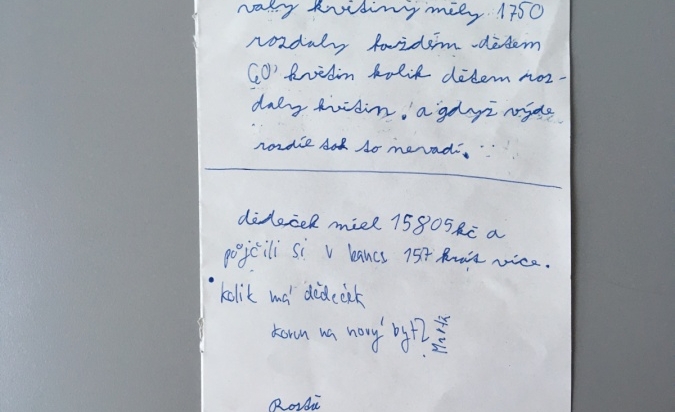 valy květiny měly 1750
rozdaly každém dětem
60 květin kolik dětem roz-
daly květin. a gdyž výde
rozdíl tak to nevadí.
dědeček miel 15805 kč a
půjčili si v bancs 157 krát více.
kolik má dědeček
korun na nový byt?